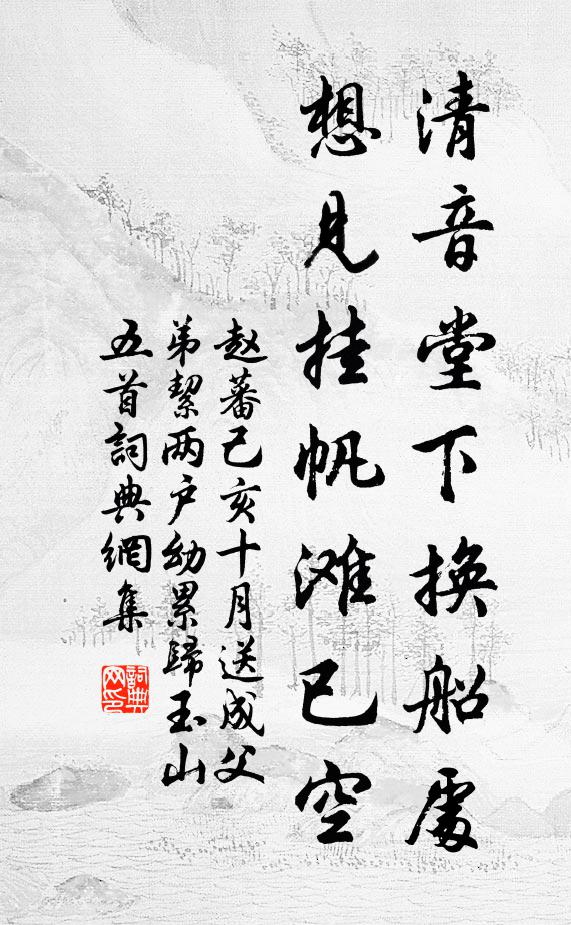 清音堂下换船處
想見挂帆滩已空
赵蕃己亥十月送成父
弟絜两户幼累歸玉山
五首詞典網集
詞典
网印